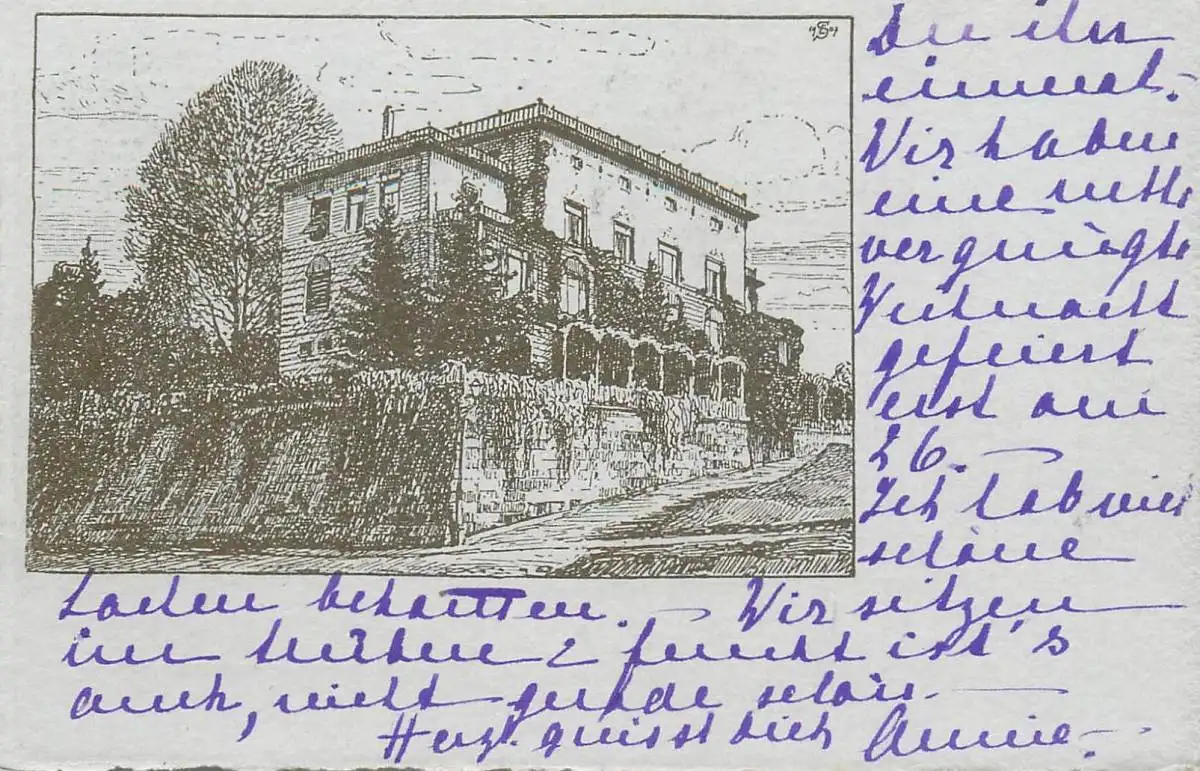 einmal.
Wir haben
eine nette
vergnügte
Weihnacht
gefeiert
erst am
26. —
Ich hab viel
schöne
Sachen behalten. — Wir sitzen
im trüben & feucht ist's
auch, nicht gerade schön. —
Herzl. grüsst dich Annie. —